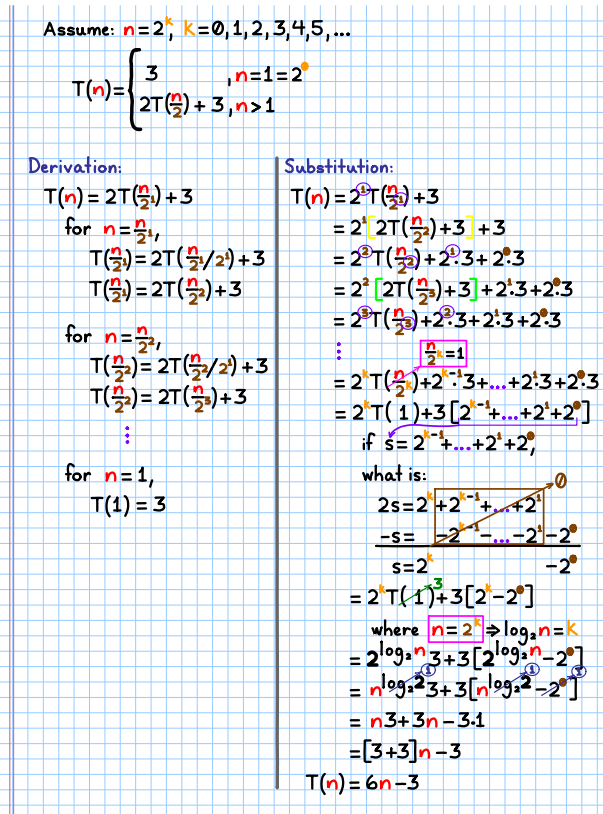 Assume: n=2^k, k=0,1,2,3,4,5,...
T(n)= { 3 , n=1=2^0
2T(n/2)+3, n>1
Derivation:
T(n)=2T(n/2^1)+3
for n=n/2^1,
T(n/2^1)=2T(n/2^1/2^1)+3
T(n/2^1)=2T(n/2^2)+3
for n=n/2^2,
T(n/2^2)=2T(n/2^2/2^1)+3
T(n/2^2)=2T(n/2^3)+3
⋮
for n=1,
T(1)=3
Substitution:
T(n)=2^1T(n/2^1)+3
=2^1[2T(n/2^2)+3]+3
=2^2T(n/2^2)+2^1·3+2^0·3
=2^2[2T(n/2^3)+3]+2^1·3+2^0·3
=2^3T(n/2^3)+2^2·3+2^1·3+2^0·3
⋮
n/2^k=1
=2^kT(n/2^k)+2^k-1·3+...+2^1·3+2^0·3
=2^kT(1)+3[2^k-1+...+2^1+2^0]
if s=2^k-1+...+2^1+2^0,
what is:
0
2s=2^k+2^k-1+...+2^1
-s= -2^k-1-...-2^1-2^0
s=2^k -2^0
3
=2^kT(1)+3[2^k-2^0]
where n=2^k⇒log₂n=k
=2^log₂n 3+3[2^log₂n-2^0]
1 1 1
=n^log₂2 3+3[n^log₂2-2^0]
=n3+3n-3·1
=[3+3]n-3
T(n)=6n-3